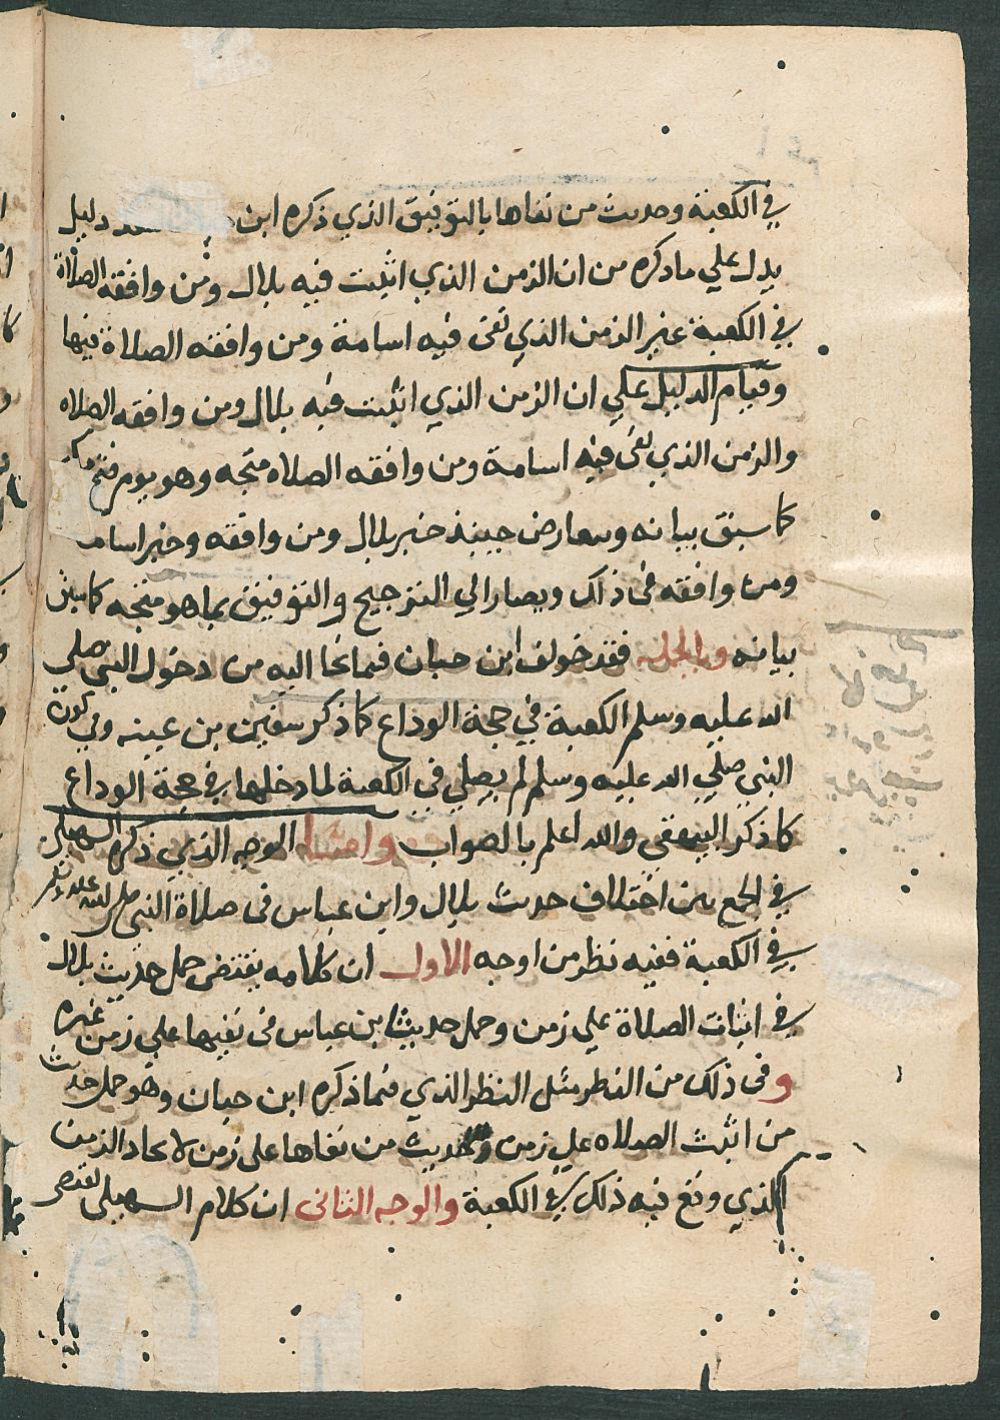 في الكعبة وحديث من نفاها بالتوفيق الذي ذكره ابن دليل
يدل علي ماذكره من ان الزمن الذي اثبت فيه بلال ومن وافقه الصلاة
في الكعبة غير الزمن الذي نفى فيه اسامة ومن وافقه الصلاة فيها
وقيام الدليل علي ان الزمن الذي اثبت فيه بلال ومن وافقه الصلاه
والزمن الذي نفى فيه اسامة ومن وافقه الصلاه متجه وهو يوم فتح مكه
كما سبق بيانه وسعارض حينيذ خبر بلال ومن وافقه وخبر اسامه
ومن وافقه في ذلك ويصار الي الترجيح والتوفيق بما هو متجه كما سبق
بيانه وبالجمله فقد خولف ابن حبان فيما نحا اليه من دخول النبي صلي
الله عليه وسلم الكعبة في حجة الوداع كما ذكر سفين بن عيينه وفي كون
النبي صلي الله عليه وسلم لم يصلي في الكعبة لما دخلها في حجة الوداع
كما ذكر البيهقي والله اعلم بالصواب واما الوجه الذي ذكره السهيلي
في الجمع بين اختلاف حديث بلال وابن عباس في صلاة النبي صلى الله عليه وسلم
في الكعبة ففيه نظر من اوجه الاول ان كلامه يقتضي حمل حديث بلال
في اثبات الصلاة علي زمن وحمل حديث ابن عباس في نفيها علي زمن غيره
وفي ذلك من النظر مثل النظر الذي فيما ذكره ابن حبان وهو حمل حديث
من اثبت الصلاه علي زمن وحديث من نفاها على زمن لاتحاد الزمن
الذي وقع فيه ذلك في الكعبة والوجه الثاني ان كلام السهيلي يقتضي